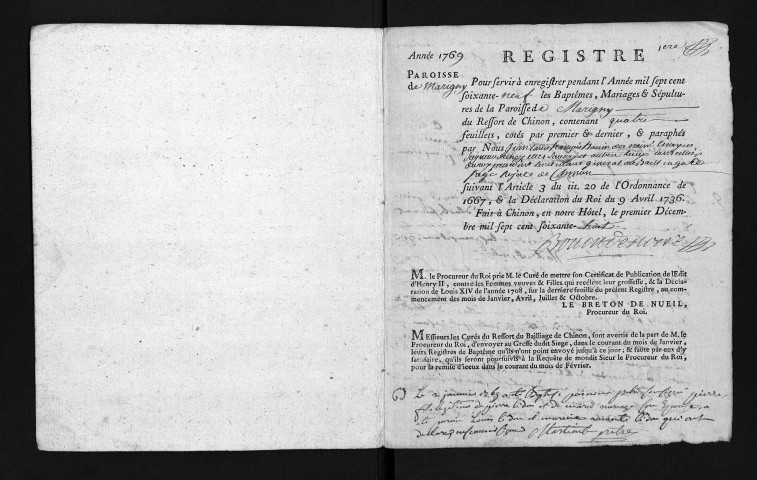 Année 1769 REGISTRE 1ere
PAROISSE
de Marigny Pour servir à enregistrer pendant l'Année mil sept cent
soixante-neuf les Baptêmes, Mariages & Sépultu-
res de la Paroisse de Marigny
du Ressort de Chinon, contenant quatre
feuillets, cotés par premier & dernier, & paraphés
par Nous
Siége Royal de Chinon
suivant l'Article 3 du tit. 20 de l'Ordonnance de
1667, & la Déclaration du Roi du 9 Avril 1736.
Fait à Chinon, en notre Hôtel, le premier Décem-
bre mil sept cent soixante-huit
M. le Procureur du Roi prie M. le Curé de mettre son Certificat de Publication de l'Edit
d'Henry II, contre les Femmes veuves & Filles qui recélent leur grossesse, & la Décla-
ration de Louis XIV de l'année 1708, sur la derniere feuille du présent Registre, au com-
mencement des mois de Janvier, Avril, Juillet & Octobre.
LE BRETON DE NUEIL,
Procureur du Roi.
MEssieurs les Curés du Ressort du Bailliage de Chinon, sont avertis de la part de M. le
Procureur du Roi, d'envoyer au Greffe dudit Siege, dans le courant du mois de Janvier,
leurs Registres de Baptême qu'ils n'ont point envoyé jusqu'à ce jour; & faute par eux d'y
satisfaire, qu'ils seront poursuivis à la Requête de mondit Sieur le Procureur du Roi,
pour la remise d'iceux dans le courant du mois de Février.
Le 2 janvier 1769 a été Baptisé par moi prêtre soussigné pierre
fils légitime de pierre et de marie son Epouse, a
été parain Louis et maraine qui ont
déclaré ne sçavoir signer Martineau prêtre